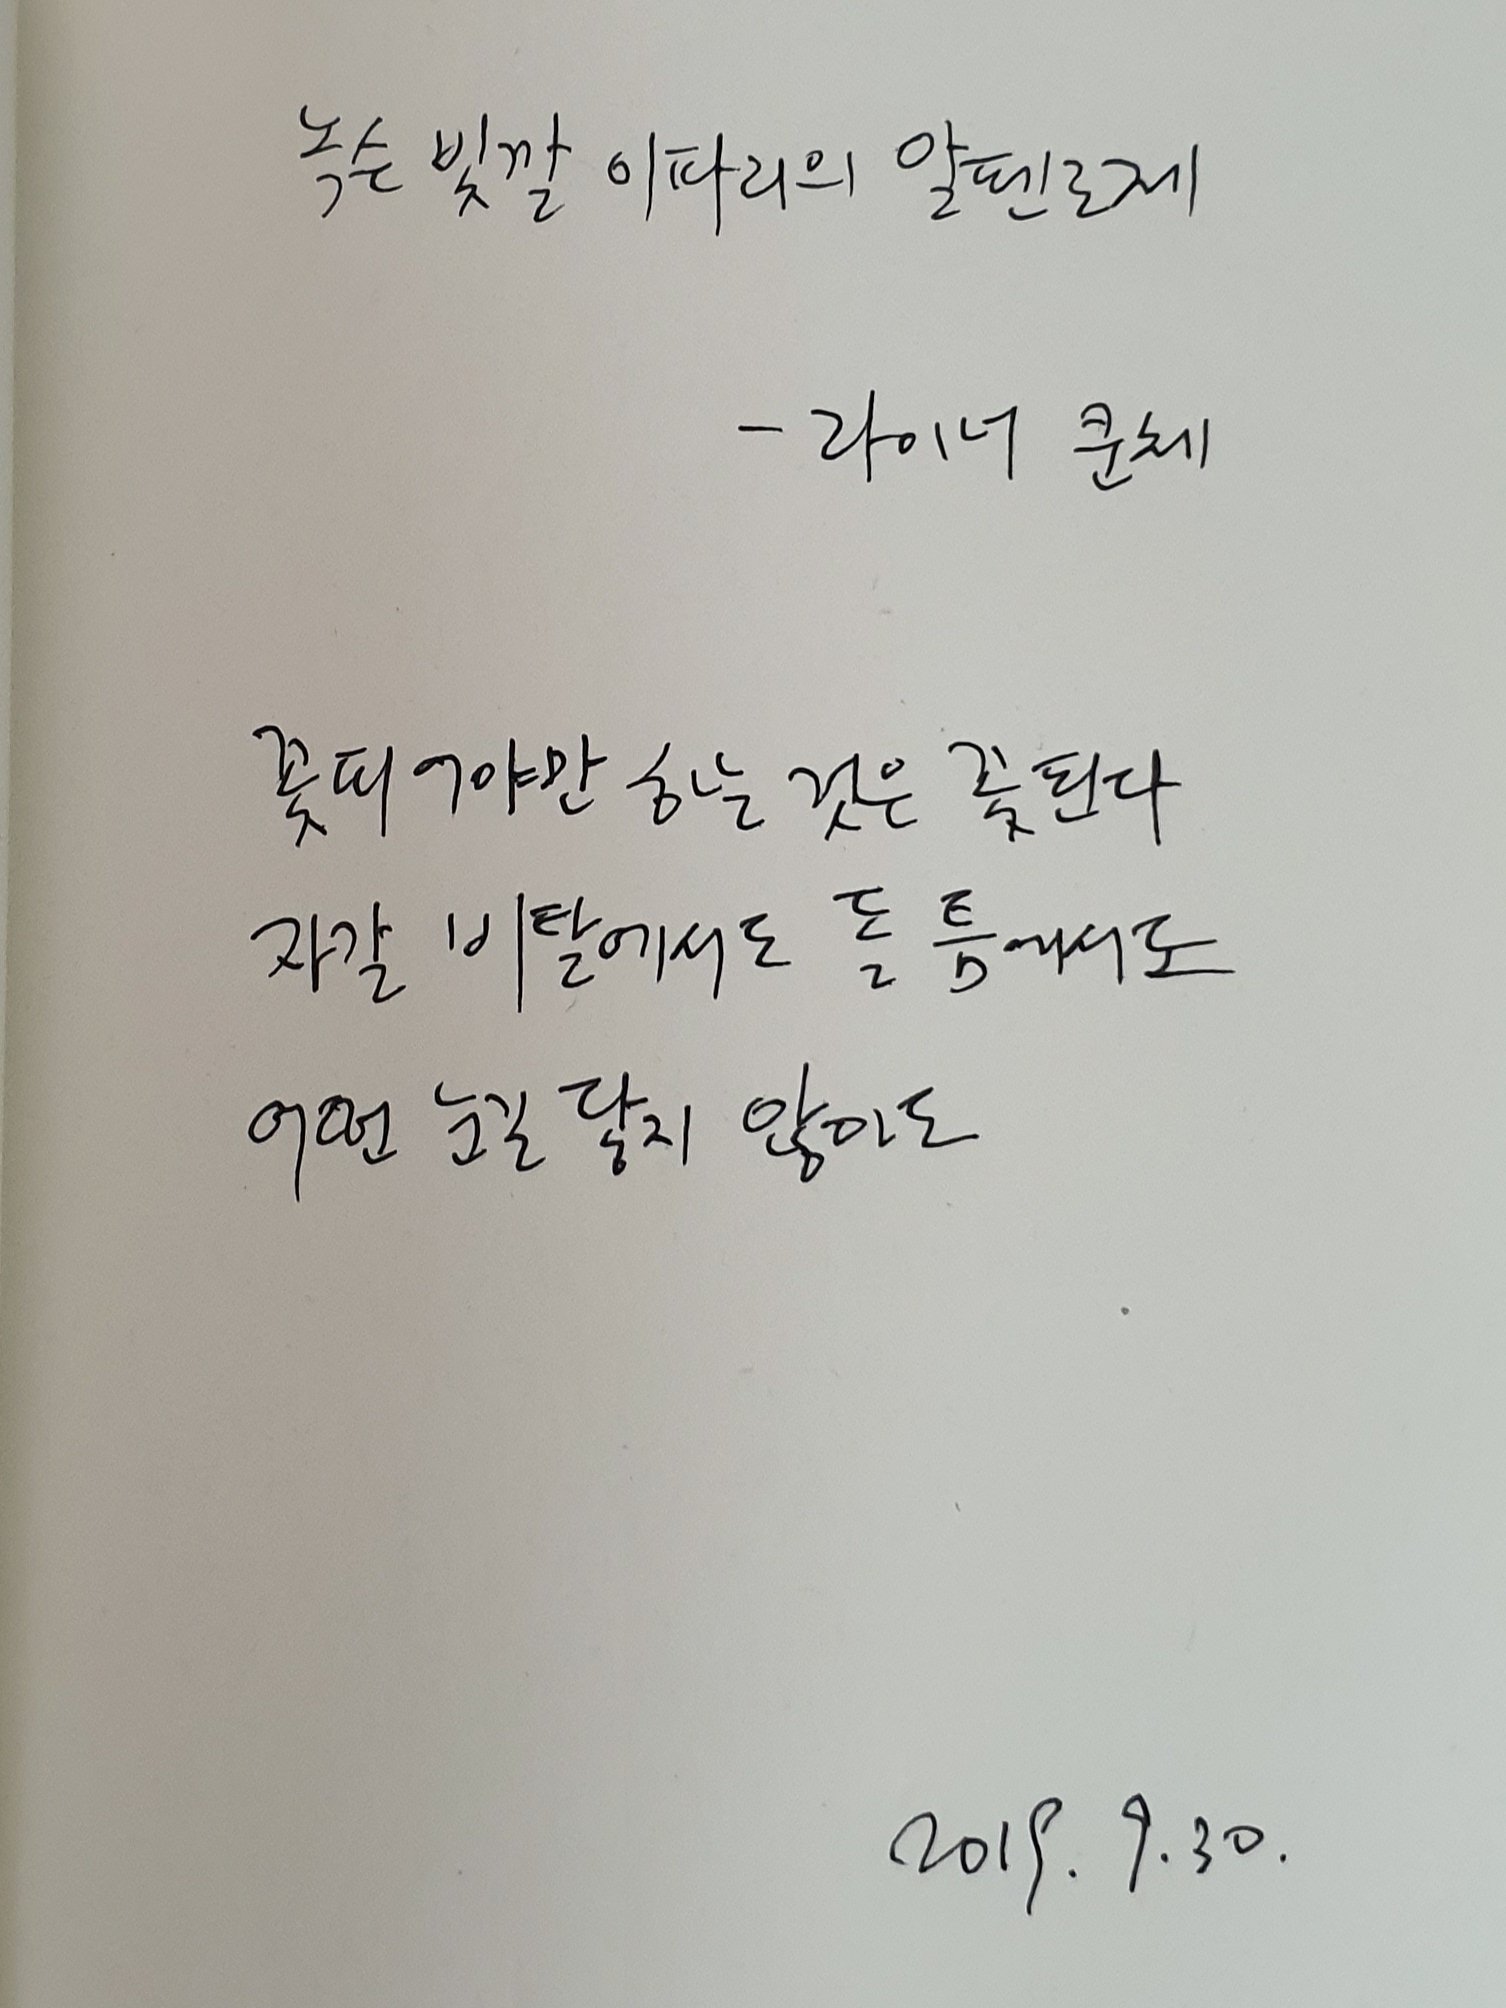 녹슨 빛깔 이파리의 알펜로제
- 라이너 쿤체
꽃피어야만 하는 것은 꽃핀다
자갈 비탈에서도 돌 틈에서도
어떤 눈길 닿지 않아도
2019. 9. 30.